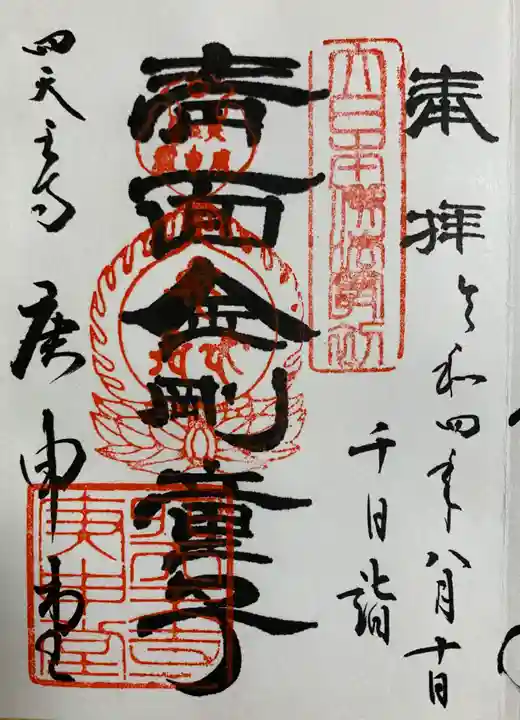 奉拝
令和四年八月十日
千日詣
大日本佛法最初
青面金剛童子
四天王寺
庚申堂
庚申堂